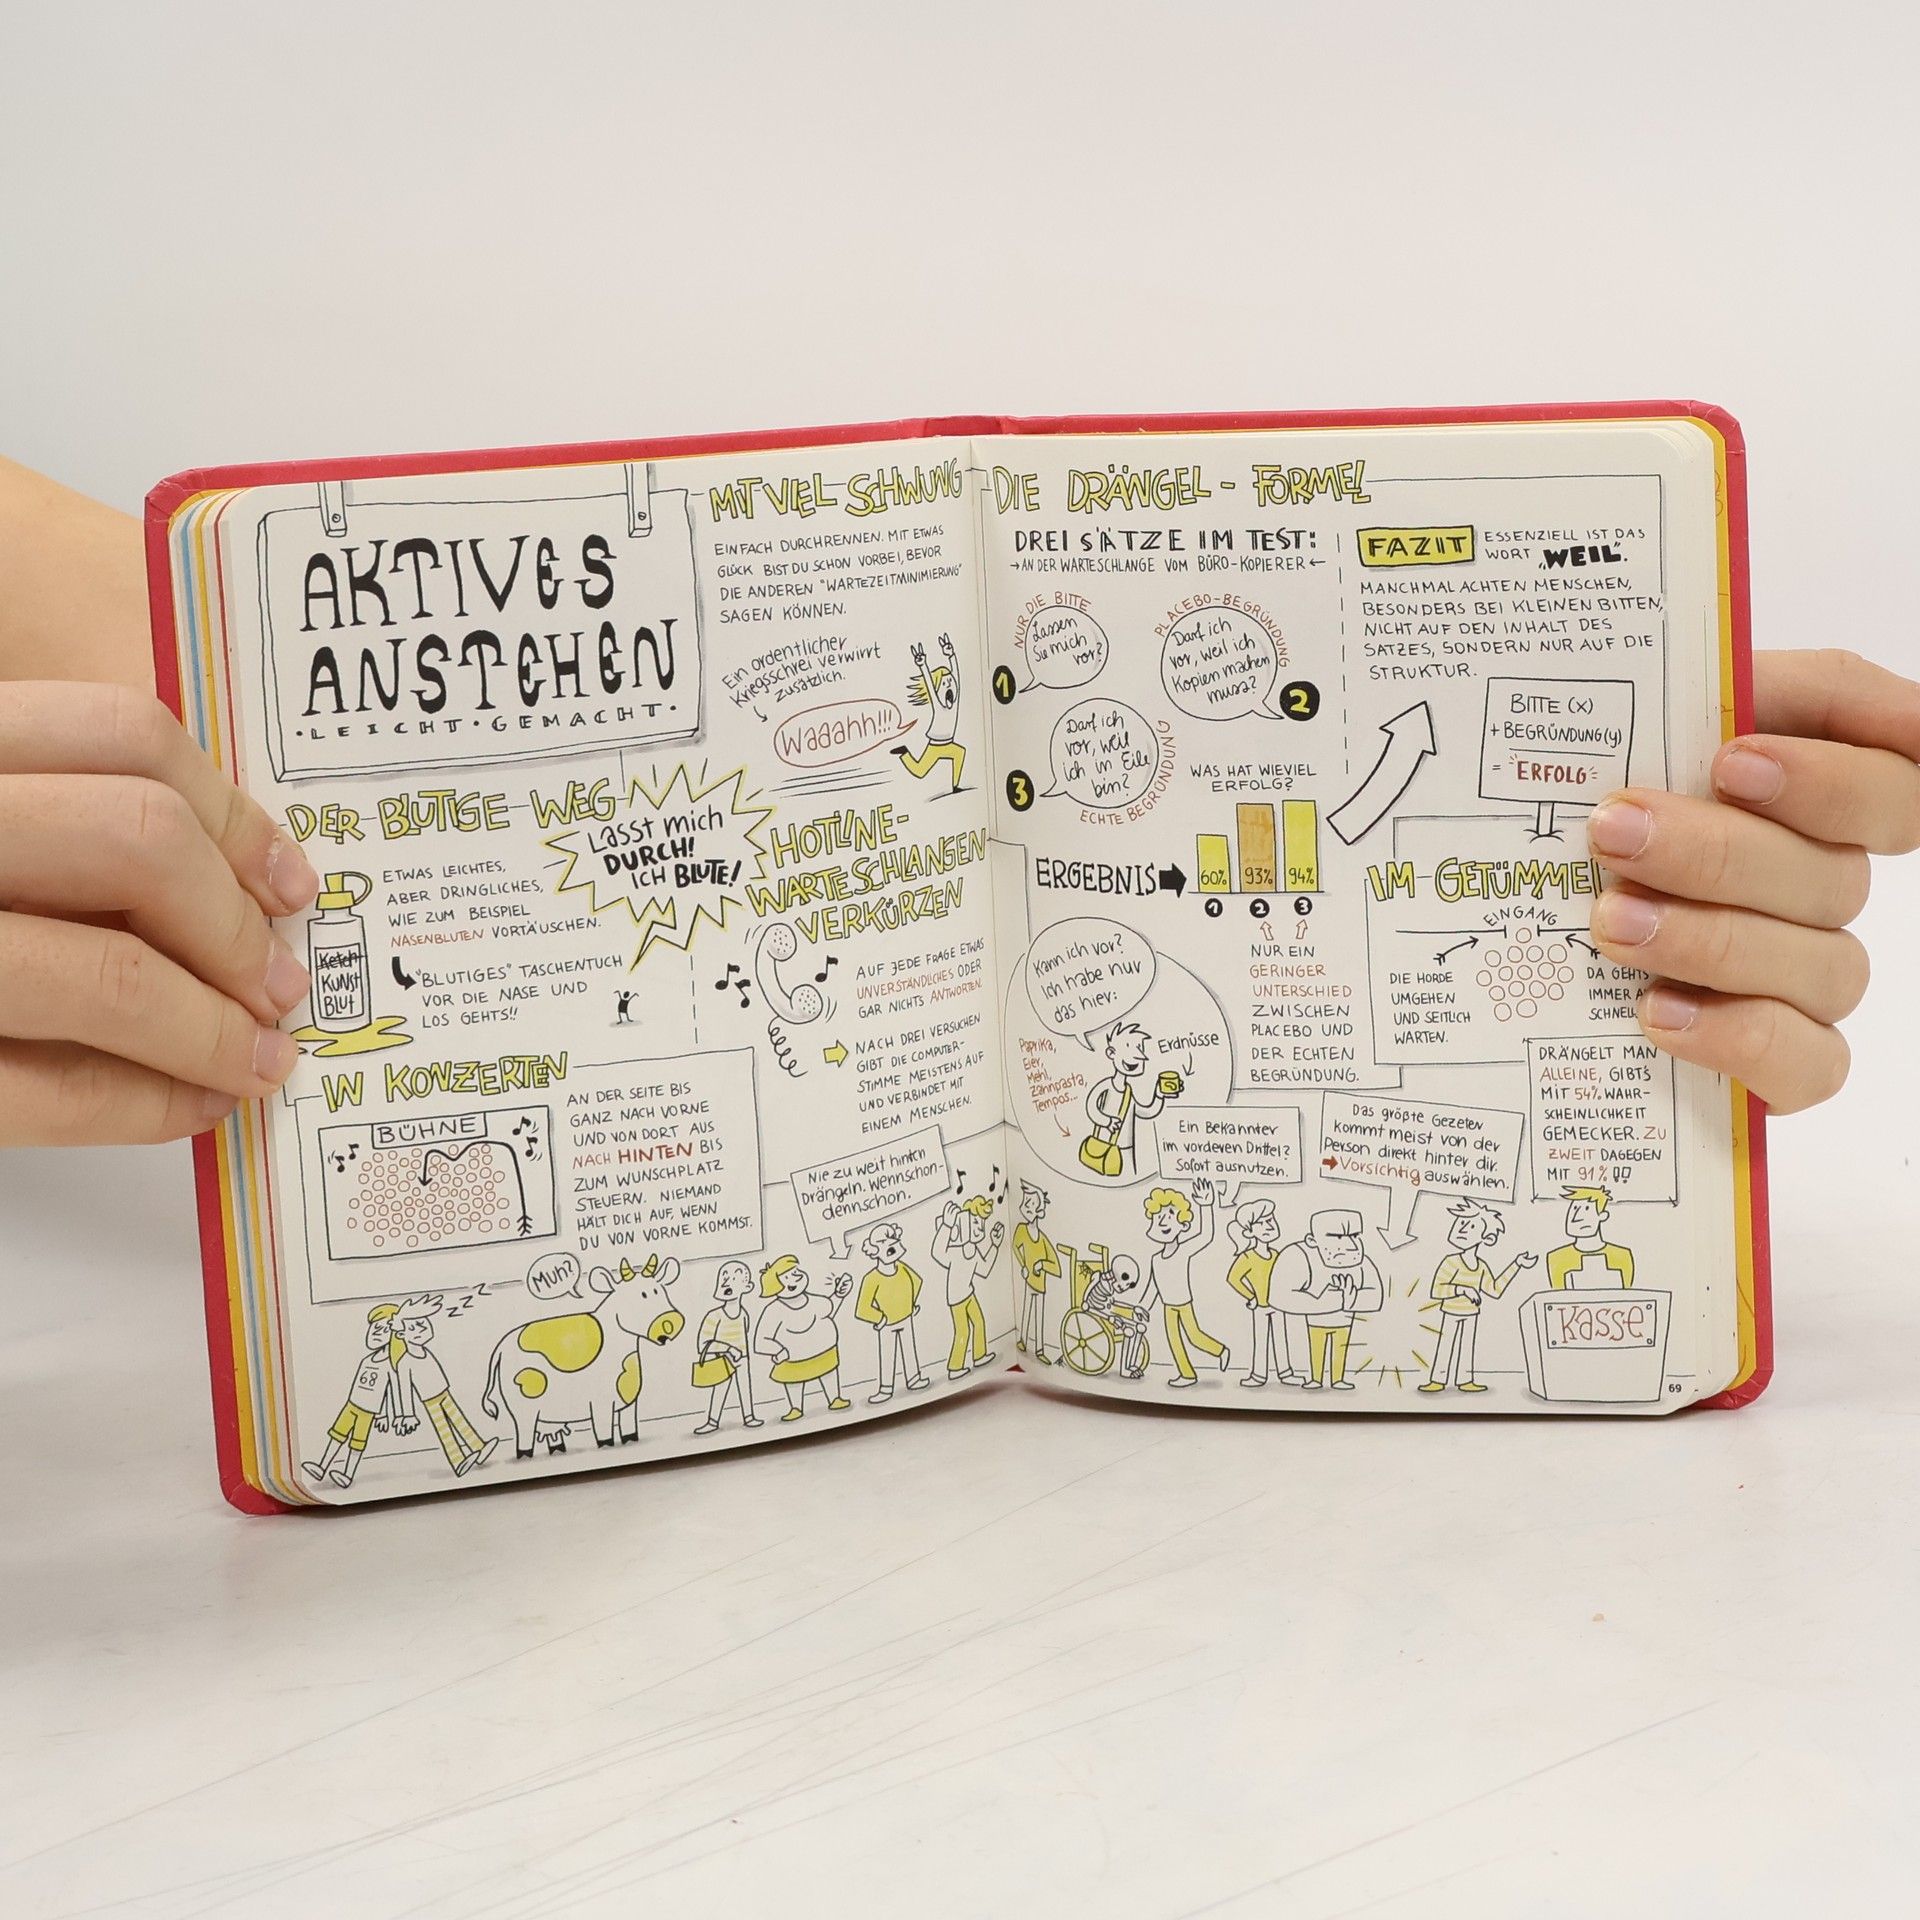 AKTIVES
ANSTEHEN
·LEICHT·GEMACHT·
MIT VIEL SCHWUNG
EINFACH DURCHRENNEN. MIT ETWAS
GLÜCK BIST DU SCHON VORBEI, BEVOR
DIE ANDEREN "WARTEZEITMINIMIERUNG"
SAGEN KÖNNEN.
Ein ordentlicher
Kriegsschrei verwirrt
zusätzlich.
Waaahh!!!
DER BLUTIGE WEG
Lasst mich
DURCH!
ICH BLUTE!
ETWAS LEICHTES,
ABER DRINGLICHES,
WIE ZUM BEISPIEL
NASENBLUTEN VORTÄUSCHEN.
Ketch
KUNST
BLUT
"BLUTIGES" TASCHENTUCH
VOR DIE NASE UND
LOS GEHTS!!
HOTLINE-
WARTESCHLANGEN
VERKÜRZEN
AUF JEDE FRAGE ETWAS
UNVERSTÄNDLICHES ODER
GAR NICHTS ANTWORTEN.
NACH DREI VERSUCHEN
GIBT DIE COMPUTER-
STIMME MEISTENS AUF
UND VERBINDET MIT
EINEM MENSCHEN.
IN KONZERTEN
BÜHNE
AN DER SEITE BIS
GANZ NACH VORNE
UND VON DORT AUS
NACH HINTEN BIS
ZUM WUNSCHPLATZ
STEUERN. NIEMAND
HÄLT DICH AUF, WENN
DU VON VORNE KOMMST.
Nie zu weit hinten
Drängeln. Wennschon-
dennschon.
zzzz
68
Muh?
DIE DRÄNGEL-FORMEL
DREI SÄTZE IM TEST:
→AN DER WARTESCHLANGE VOM BÜRO-KOPIERER←
NUR DIE BITTE
Lassen
Sie mich
vor?
1
PLACEBO-BEGRÜNDUNG
Darf ich
vor, weil ich
Kopien machen
muss?
2
Darf ich
vor, weil
ich in Eile
bin?
3
ECHTE BEGRÜNDUNG
WAS HAT WIEVIEL
ERFOLG?
ERGEBNIS
60% 93% 94%
1 2 3
NUR EIN
GERINGER
UNTERSCHIED
ZWISCHEN
PLACEBO UND
DER ECHTEN
BEGRÜNDUNG.
FAZIT
ESSENZIELL IST DAS
WORT „WEIL".
MANCHMAL ACHTEN MENSCHEN,
BESONDERS BEI KLEINEN BITTEN,
NICHT AUF DEN INHALT DES
SATZES, SONDERN NUR AUF DIE
STRUKTUR.
BITTE (x)
+ BEGRÜNDUNG (y)
= ERFOLG
IM GETÜMMEL
EINGANG
DIE HORDE
UMGEHEN
UND SEITLICH
WARTEN.
DA GEHTS
IMMER
Kann ich vor?
Ich habe nur
das hier:
Erdnüsse
Paprika,
Eier,
Mehl,
Zahnpasta,
Tempos...
Ein Bekannter
im vorderen Drittel?
Sofort ausnutzen.
Das größte Gezeter
kommt meist von der
Person direkt hinter dir.
Vorsichtig auswählen.
DRÄNGELT MAN
ALLEINE, GIBT'S
MIT 54% WAHR-
SCHEINLICHKEIT
GEMECKER. ZU
ZWEIT DAGEGEN
MIT 91%!!
Kasse
69